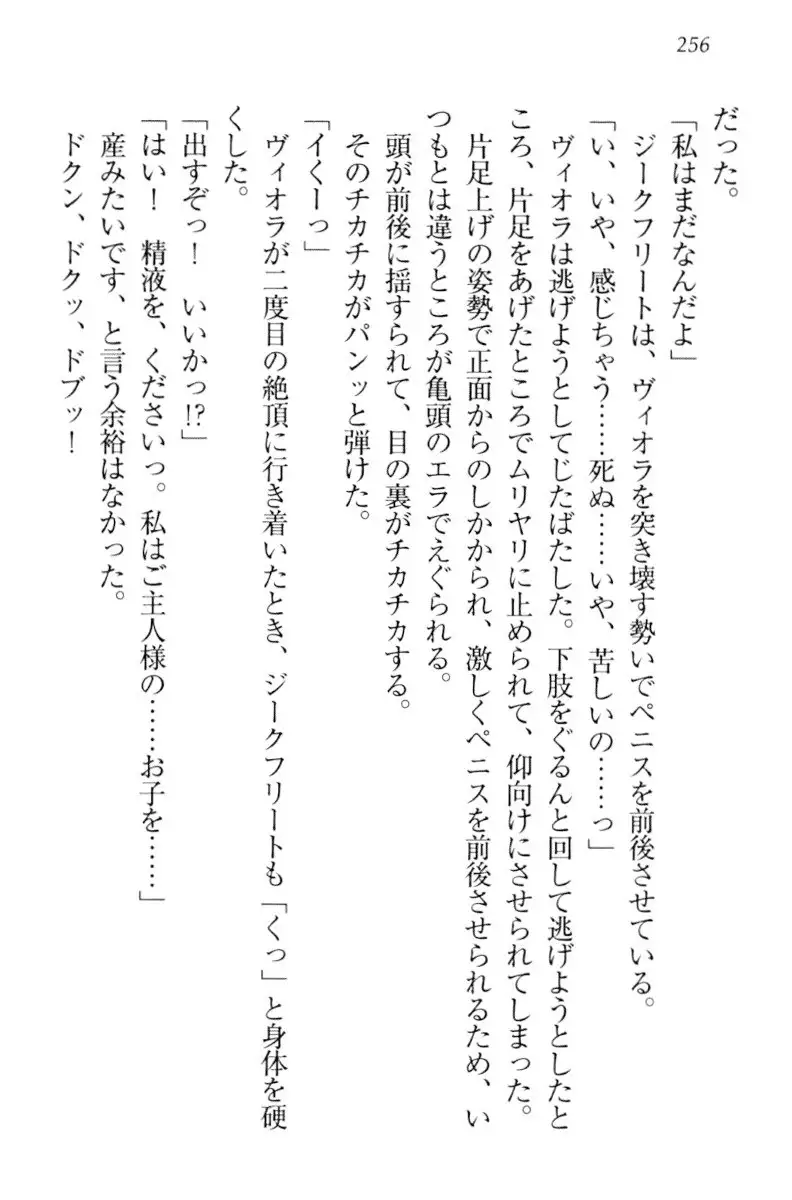 256
だった。
「私はまだなんだよ」
ジークフリートは、ヴィオラを突き壊す勢いでペニスを前後させている。
「い、いや、感じちゃう……死ぬ……いや、苦しいの……っ」
ヴィオラは逃げようとしてじたばたした。下肢をぐるんと回して逃げようとしたと
ころ、片足をあげたところでムリヤリに止められて、仰向けにさせられてしまった。
片足上げの姿勢で正面からのしかかられ、激しくペニスを前後させられるため、い
つもとは違うところが亀頭のエラでえぐられる。
頭が前後に揺すられて、目の裏がチカチカする。
そのチカチカがパンッと弾けた。
「イくーっ」
ヴィオラが二度目の絶頂に行き着いたとき、ジークフリートも「くっ」と身体を硬
くした。
「出すぞっ！　いいかっ!?」
「はい！　精液を、くださいっ。私はご主人様の……お子を……」
産みたいです、と言う余裕はなかった。
ドクン、ドクッ、ドブッ！